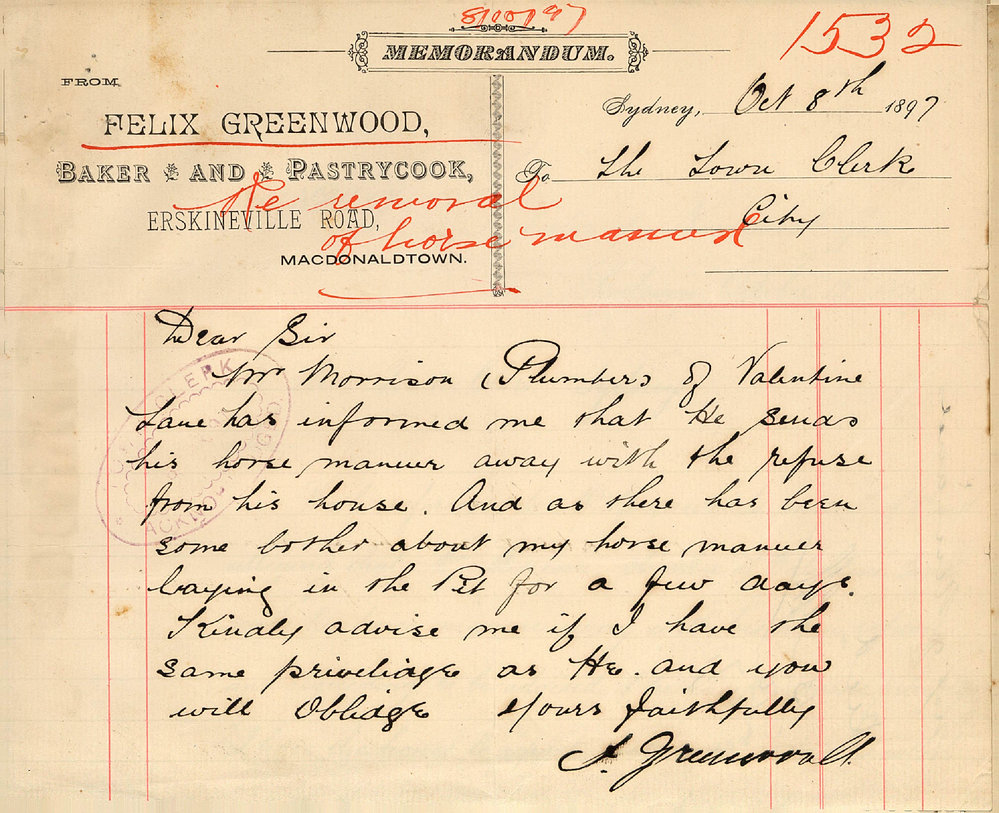 8/10/97
1532
MEMORANDUM.
FROM
FELIX GREENWOOD,
BAKER AND PASTRYCOOK,
ERSKINEVILLE ROAD,
MACDONALDTOWN.
Sydney, Oct 8th 1897
To The Town Clerk
City
Re removal
of horse manure
Dear Sir
Mr Morrison (Plumber) of Valentine
Lane has informed me that He sends
his horse manuer away with the refuse
from his house. And as there has been
some bother about my horse manuer
laying in the Pit for a few days.
Kindly advise me if I have the
same priveliadge as He. and you
will Oblidge Yours faithfully
CLERK